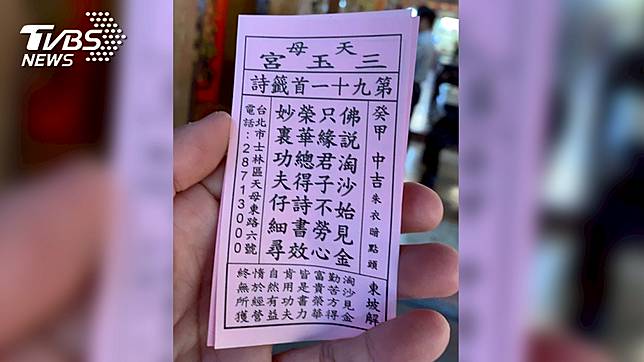 TVBS
NEWS
天母
三玉宮
第九十一首籤詩
癸甲 中吉 朱衣暗點頭
佛說淘沙始見金
只緣君子不勞心
榮華總得詩書效
妙裏功夫仔細尋
台北市士林區天母東路六號
電話:28713000
東坡解
淘沙見金
勤苦方得
富貴榮華
皆是書力
肯用功夫
自然有益
惰於經營
終無所獲